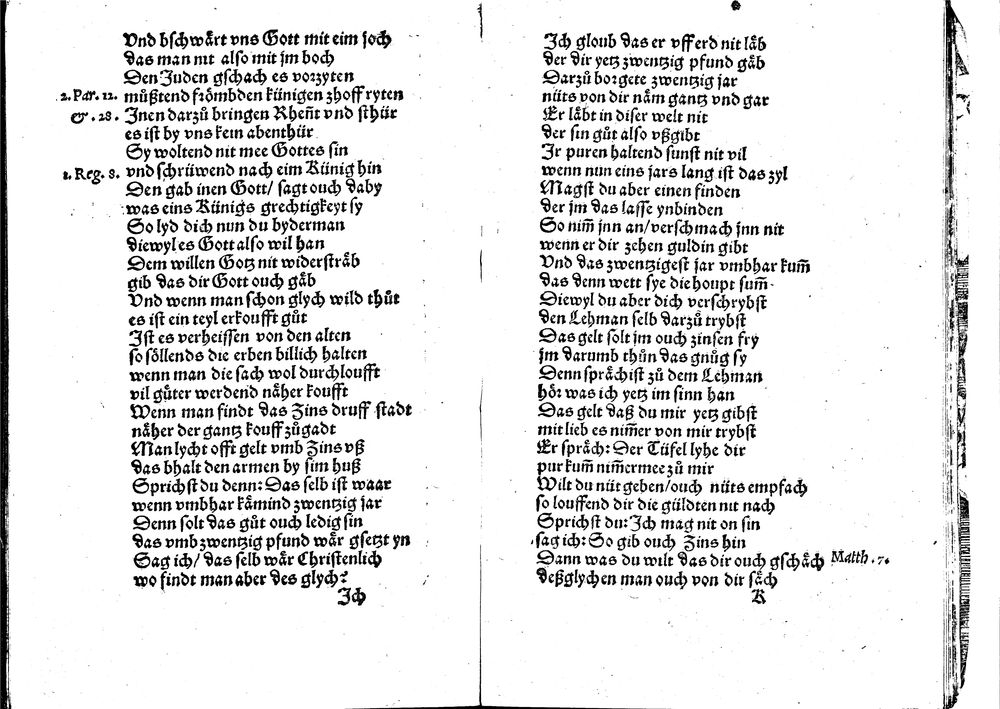 Vnd bschwärt vns Gott mit eim joch
das man nit also mit jm boch
Den Juden gschach es vorzyten
2. Par. 12. müßtend frömbden künigen zhoff ryten
& . 28. Jnen darzů bringen Rheñt vnd sthür
es ist by vns kein abenthür
Sy woltend nit mee Gottes sin
1. Reg. 8. vnd schrüwend nach eim Künig hin
Den gab inen Gott/ sagt ouch daby
was eins Künigs grechtigkeyt sy
So lyd dich nun du byderman
diewyl es Gott also wil han
Dem willen Gotz nit widersträb
gib das dir Gott ouch gäb
Vnd wenn man schon glych wild thůt
es ist ein teyl erkoufft gůt
Jst es verheissen von den alten
so söllends die erben billich halten
wenn man die sach wol durchloufft
vil güter werdend näher koufft
Wenn man findt das Zins druff stadt
näher der gantz kouff zůgadt
Man lycht offt gelt vmb Zins vß
das bhalt den armen by sim huß
Sprichst du denn: Das selb ist waar
wenn vmbhar kämind zwentzig jar
Denn solt das gůt ouch ledig sin
das vmb zwentzig pfund wär gsetzt yn
Sag ich/ das selb wär Christenlich
wo findt man aber des glych?
Jch
Jch gloub das er vff erd nit läb
der dir yetz zwentzig pfund gäb
Darzů borgete zwentzig jar
nüts von dir näm gantz vnd gar
Er läbt in diser welt nit
der sin gůt also vßgibt
Jr puren haltend sunst nit vil
wenn nun eins jars lang ist das zyl
Magst du aber einen finden
der jm das lasse ynbinden
So nim̃ jnn an/ verschmach jnn nit
wenn er dir zehen guldin gibt
Vnd das zwentzigest jar vmbhar kum̃
das denn wett sye die houpt sum̃
Diewyl du aber dich verschrybst
den Lehman selb darzů trybst
Das gelt solt jm ouch zinsen fry
jm darumb thůn das gnůg sy
Denn sprächist zů dem Lehman
hör was ich yetz im sinn han
Das gelt daß du mir yetz gibst
mit lieb es nim̃er von mir trybst
Er spräch: Der Tüfel lyhe dir
pur kum̃ nim̃ermee zů mir
Wilt du nüt geben/ ouch nüts empfach
so louffend dir die güldten nit nach
Sprichst du: Jch mag nit on sin
sag ich: So gib ouch Zins hin
Dann was du wilt das dir ouch gschäch Matth. 7.
deßglychen man ouch von dir säch
K